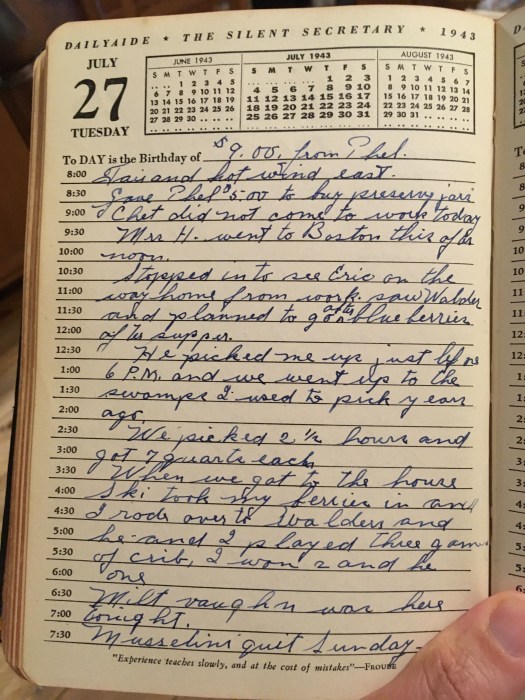 DAILYAIDE ★ THE SILENT SECRETARY ★ 1943
JULY
27
TUESDAY
JUNE 1943
S M T W T F S
. . . . 1 2 3 4 5
6 7 8 9 10 11 12
13 14 15 16 17 18 19
20 21 22 23 24 25 26
27 28 29 30 . . . . . .
JULY 1943
S M T W T F S
. . . . . . . . 1 2 3
4 5 6 7 8 9 10
11 12 13 14 15 16 17
18 19 20 21 22 23 24
25 26 27 28 29 30 31
AUGUST 1943
S M T W T F S
1 2 3 4 5 6 7
8 9 10 11 12 13 14
15 16 17 18 19 20 21
22 23 24 25 26 27 28
29 30 31 . . . . . . . .
To DAY is the Birthday of $9.00, from Phel.
8:00 Fair and hot wind east.
8:30 Gave Phel $5.00 to buy preserv jars
9:00 Chet did not come to work today
9:30 Mrs H. went to Boston this after
10:00 noon.
10:30 Stopped in to see Eric on the
11:00 way home from work. saw Walder
11:30 and planned to go after blueberries
12:00 after supper.
12:30 He picked me up just before
1:00 6 P.M. and we went up to the
1:30 swamps I used to pick years
2:00 ago.
2:30 We picked 2 1/2 hours and
3:00 got 7 quarts each,
3:30 When we got to the house
4:00 Ski took my berries in and
4:30 I rode over to Walders and
5:00 he and I played three games
5:30 of crib, I won 2 and he
6:00 one
6:30 Milt Vaughn was here
7:00 tonight.
7:30 Musselini quit Sunday-
"Experience teaches slowly, and at the cost of mistakes"—FROUDE